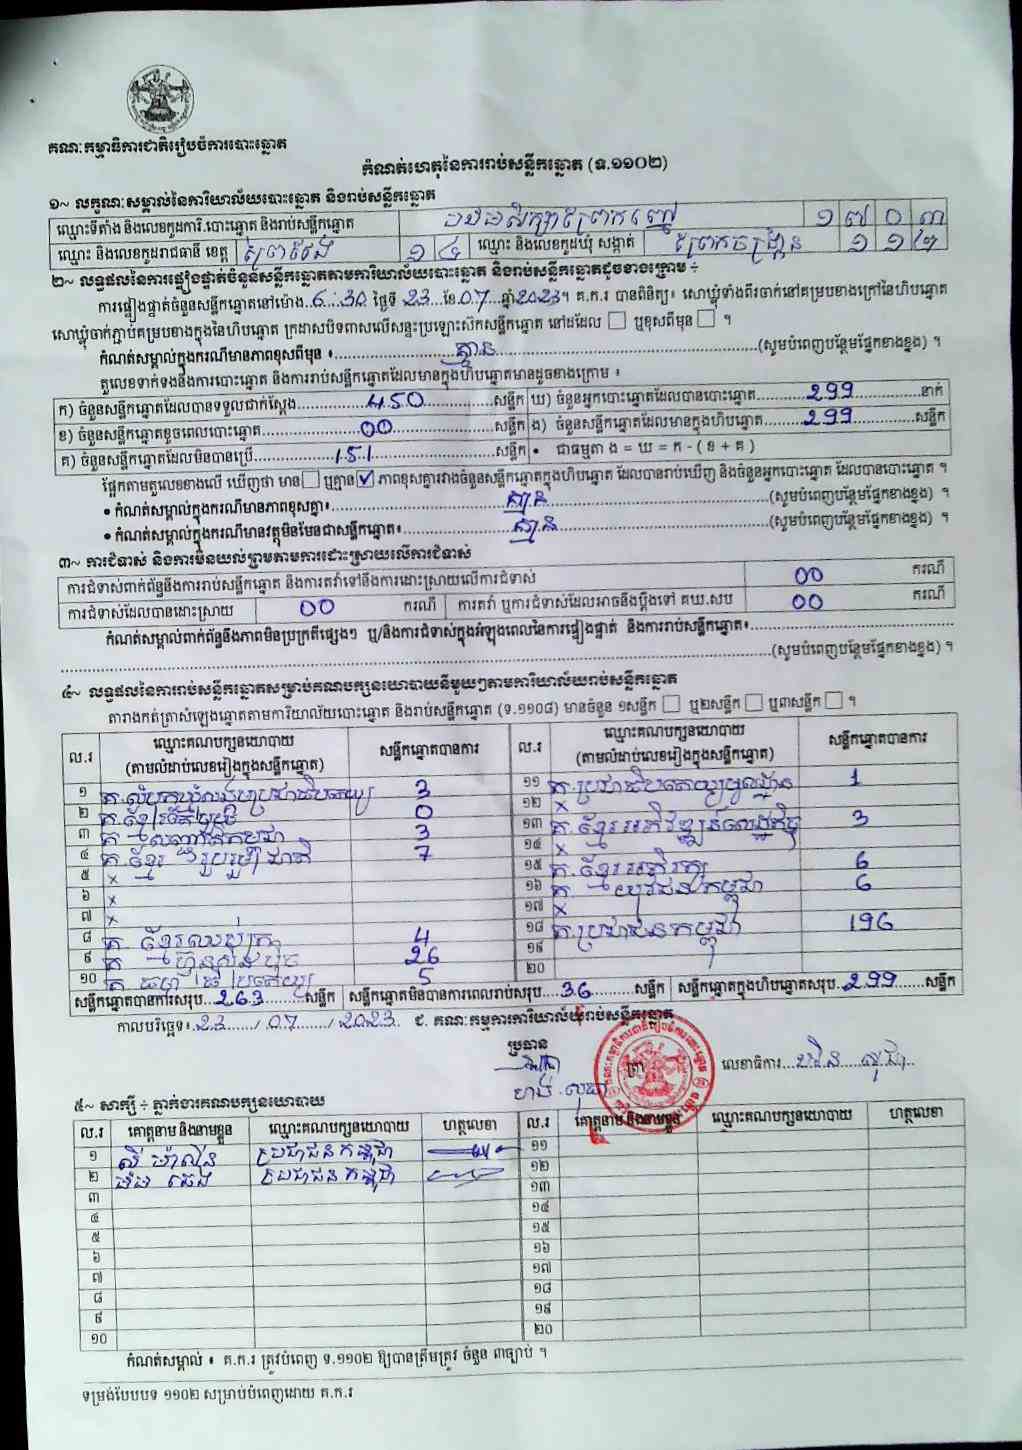 គណៈកម្មាធិការជាតិរៀបចំការបោះឆ្នោត
កំណត់ហេតុនៃការរាប់សន្លឹកឆ្នោត (ទ.១១០២)
១~ លក្ខណៈសម្គាល់នៃការិយាល័យបោះឆ្នោត និងរាប់សន្លឹកឆ្នោត
ឈ្មោះទីតាំង និងលេខកូដការិ.បោះឆ្នោត និងរាប់សន្លឹកឆ្នោត ១៧០៣
ឈ្មោះ និងលេខកូដរាជធានី ខេត្ត ព្រៃវែង ១៤ ឈ្មោះ និងលេខកូដឃុំ សង្កាត់ ១១២
២~ លទ្ធផលនៃការផ្ទៀងផ្ទាត់ចំនួនសន្លឹកឆ្នោតតាមការិយាល័យបោះឆ្នោត និងរាប់សន្លឹកឆ្នោតដូចខាងក្រោម ÷
ការផ្ទៀងផ្ទាត់ចំនួនសន្លឹកឆ្នោតនៅម៉ោង 6:30 ថ្ងៃទី 23 ខែ 07 ឆ្នាំ 2023។ គ.ក.រ បានពិនិត្យ៖ សោឃ្លុំទាំងពីរចាក់នៅគម្របខាងក្រៅនៃហិបឆ្នោត
សោឃ្លុំចាក់ភ្ជាប់គម្របខាងក្នុងនៃហិបឆ្នោត ក្រដាសបិទពាសលើសន្ទះប្រឡោះស៊កសន្លឹកឆ្នោត នៅដដែល ☐ ឬខុសពីមុន ☐ ។
កំណត់សម្គាល់ក្នុងករណីមានភាពខុសពីមុន ៖ គ្មាន (សូមបំពេញបន្ថែមផ្នែកខាងខ្នង) ។
តួលេខទាក់ទងនឹងការបោះឆ្នោត និងការរាប់សន្លឹកឆ្នោតដែលមានក្នុងហិបឆ្នោតមានដូចខាងក្រោម ៖
ក) ចំនួនសន្លឹកឆ្នោតដែលបានទទួលជាក់ស្តែង 450 សន្លឹក ឃ) ចំនួនអ្នកបោះឆ្នោតដែលបានបោះឆ្នោត 299 នាក់
ខ) ចំនួនសន្លឹកឆ្នោតខូចពេលបោះឆ្នោត 00 សន្លឹក ង) ចំនួនសន្លឹកឆ្នោតដែលមានក្នុងហិបឆ្នោត 299 សន្លឹក
គ) ចំនួនសន្លឹកឆ្នោតដែលមិនបានប្រើ 151 សន្លឹក • ជាធម្មតា ង = ឃ = ក - ( ខ + គ )
ផ្អែកតាមតួលេខខាងលើ ឃើញថា មាន ☐ ឬគ្មាន ☑ ភាពខុសគ្នារវាងចំនួនសន្លឹកឆ្នោតក្នុងហិបឆ្នោត ដែលបានរាប់ឃើញ និងចំនួនអ្នកបោះឆ្នោត ដែលបានបោះឆ្នោត ។
• កំណត់សម្គាល់ក្នុងករណីមានភាពខុសគ្នា៖ គ្មាន (សូមបំពេញបន្ថែមផ្នែកខាងខ្នង) ។
• កំណត់សម្គាល់ក្នុងករណីមានវត្ថុមិនមែនជាសន្លឹកឆ្នោត៖ គ្មាន (សូមបំពេញបន្ថែមផ្នែកខាងខ្នង) ។
៣~ ការជំទាស់ និងការមិនយល់ព្រមតាមការដោះស្រាយលើការជំទាស់
ការជំទាស់ពាក់ព័ន្ធនឹងការរាប់សន្លឹកឆ្នោត និងការតវ៉ាទៅនឹងការដោះស្រាយលើការជំទាស់ 00 ករណី
ការជំទាស់ដែលបានដោះស្រាយ 00 ករណី ការតវ៉ា ឬការជំទាស់ដែលអាចនឹងប្តឹងទៅ គឃ.សប 00 ករណី
កំណត់សម្គាល់ពាក់ព័ន្ធនឹងភាពមិនប្រក្រតីផ្សេងៗ ឬ/និងការជំទាស់ក្នុងអំឡុងពេលនៃការផ្ទៀងផ្ទាត់ និងការរាប់សន្លឹកឆ្នោត៖
(សូមបំពេញបន្ថែមផ្នែកខាងខ្នង) ។
៤~ លទ្ធផលនៃការរាប់សន្លឹកឆ្នោតសម្រាប់គណបក្សនយោបាយនីមួយៗតាមការិយាល័យរាប់សន្លឹកឆ្នោត
តារាងកត់ត្រាសំឡេងឆ្នោតតាមការិយាល័យបោះឆ្នោត និងរាប់សន្លឹកឆ្នោត (ទ.១១០៨) មានចំនួន ១សន្លឹក ☐ ឬ២សន្លឹក ☐ ឬ៣សន្លឹក ☐ ។
ល.រ ឈ្មោះគណបក្សនយោបាយ (តាមលំដាប់លេខរៀងក្នុងសន្លឹកឆ្នោត) សន្លឹកឆ្នោតបានការ ល.រ ឈ្មោះគណបក្សនយោបាយ (តាមលំដាប់លេខរៀងក្នុងសន្លឹកឆ្នោត) សន្លឹកឆ្នោតបានការ
១ គ.សំបុកឃ្មុំសង្គមប្រជាធិបតេយ្យ 3 ១១ គ.ប្រជាធិបតេយ្យមូលដ្ឋាន 1
២ គ.ខ្មែររួបរួម 0 ១២ x
៣ គ. សញ្ជាតិកម្ពុជា 3 ១៣ គ.ខ្មែរអភិវឌ្ឍន៍សេដ្ឋកិច្ច 3
៤ គ.ខ្មែររួបរួមជាតិ 7 ១៤ x
៥ x ១៥ គ.ខ្មែរអភិរក្ស 6
៦ x ១៦ គ. យុវជនកម្ពុជា 6
៧ x ១៧ x
៨ គ. ខ្មែរឈប់ក្រ 4 ១៨ គ.ប្រជាជនកម្ពុជា 196
៩ គ ហ៊្វុនស៊ិនប៉ិច 26 ១៩
១០ គ 5 ២០
សន្លឹកឆ្នោតបានការសរុប 263 សន្លឹក សន្លឹកឆ្នោតមិនបានការពេលរាប់សរុប 36 សន្លឹក សន្លឹកឆ្នោតក្នុងហិបឆ្នោតសរុប 299 សន្លឹក
កាលបរិច្ឆេទ៖ 23 / 07 / 2023 ជ. គណៈកម្មការការិយាល័យរាប់សន្លឹកឆ្នោត
ប្រធាន
លេខាធិការ
៥~ សាក្សី ÷ ភ្នាក់ងារគណបក្សនយោបាយ
ល.រ គោត្តនាម និងនាមខ្លួន ឈ្មោះគណបក្សនយោបាយ ហត្ថលេខា ល.រ គោត្តនាម និងនាមខ្លួន ឈ្មោះគណបក្សនយោបាយ ហត្ថលេខា
១ ប្រជាជនកម្ពុជា ១១
២ ប្រជាជនកម្ពុជា ១២
៣ ១៣
៤ ១៤
៥ ១៥
៦ ១៦
៧ ១៧
៨ ១៨
៩ ១៩
១០ ២០
កំណត់សម្គាល់ ៖ គ.ក.រ ត្រូវបំពេញ ទ.១១០២ ឱ្យបានត្រឹមត្រូវ ចំនួន ៣ច្បាប់ ។
ទម្រង់បែបបទ ១១០២ សម្រាប់បំពេញដោយ គ.ក.រ